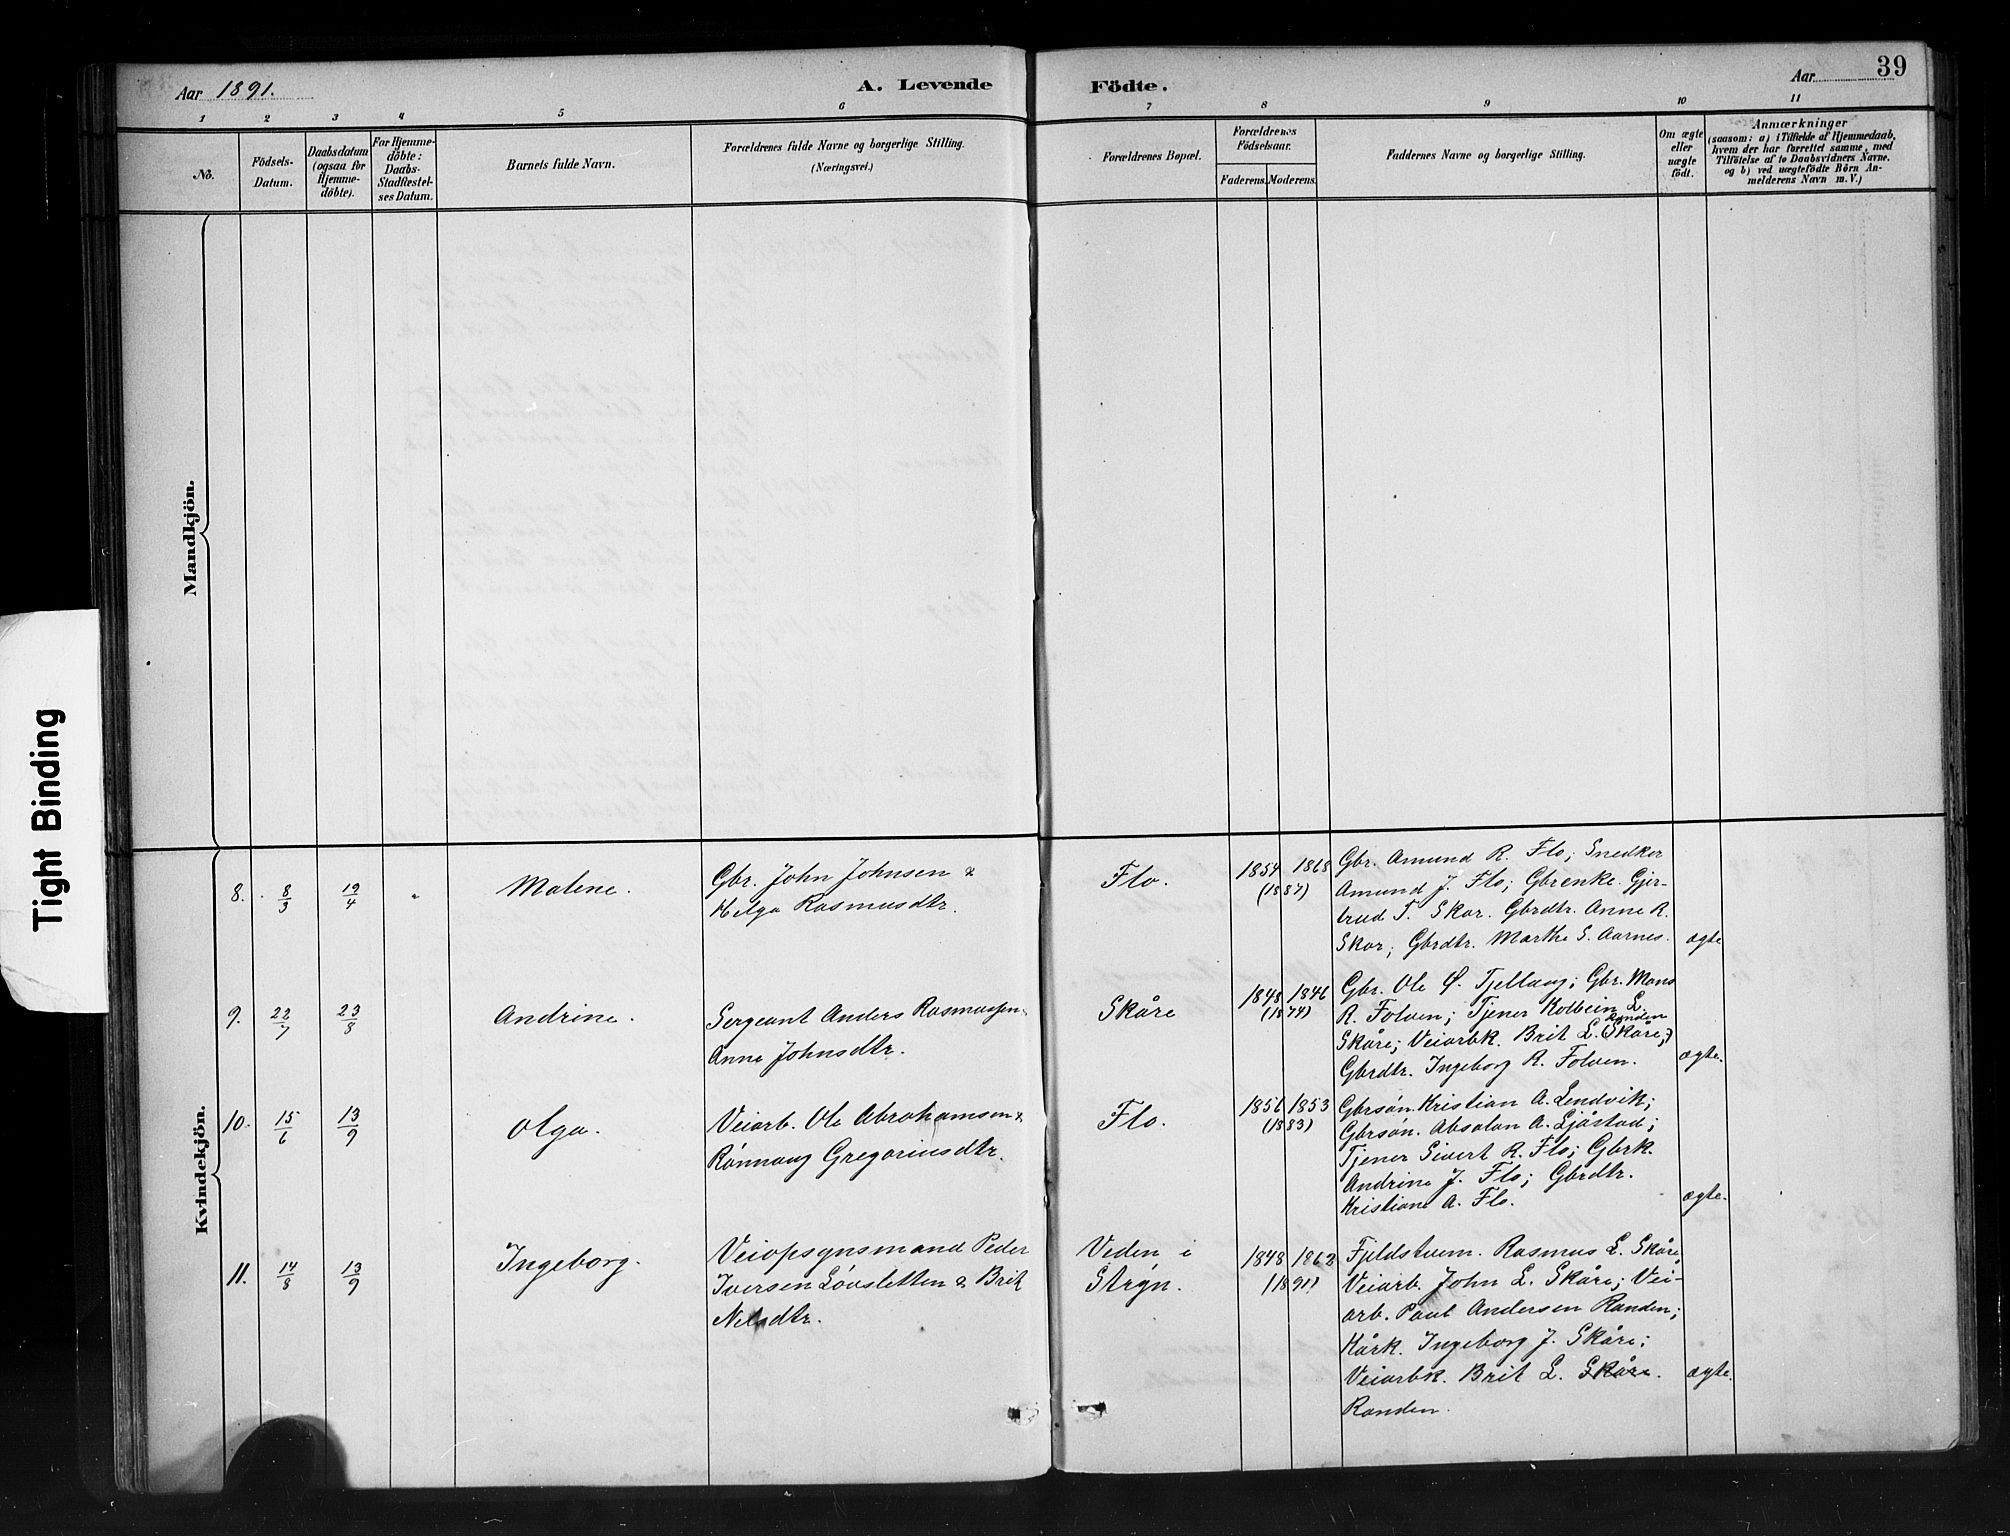 Tight Binding
Aar 1891.
A. Levende
Födte.
Aar
39
1
2
3
4
5
6
7
8
9
10
11
No.
Födsels-
Datum.
Daabsdatum
(ogsaa for
Hjemme-
döbte).
For Hjemme-
döbte:
Daabs-
Stadfæstel-
ses Datum.
Barnets fulde Navn.
Forældrenes fulde Navne og borgerlige Stilling.
(Næringsvei.)
Forældrenes Bopæl.
Forældrenes
Födselsaar.
Faderens.
Moderens.
Faddernes Navne og borgerlige Stilling.
Om ægte
eller
uægte
födt.
Anmærkninger
(saasom: a) i Tilfælde af Hjemmedaab,
hvem der har forrettet samme, med
Tilföielse af to Daabsvidners Navne.
og b) ved uægtefödte Börn An-
melderens Navn m. V.)
Mandkjön.
Kvindekjön.
8.
8/3
19/4
"
Malene.
Gbr. John Johnsen &
Helga Rasmusdtr.
Flo.
1854
1868
(1887)
Gbr. Amund R. Flo; Snedker
Amund J. Flo; Gbrenke. Gjer-
trud T. Skar. Gbrdtr. Anne R.
Skar; Gbrdtr. Marthe S. Aarnes.
ægte
9.
22/7
23/8
Andrine.
Sergeant Anders Rasmussen
Anne Johnsdtr.
Skåre
1848
1846
(1874)
Gbr. Ole Ø. Tjellaug; Gbr. Mons
R. Folven; Tjener Kolbein L.
Randen
Skåre; Veiarbk. Brit L. (Skåre;)
Gbrdtr. Ingeborg R. Folven.
ægte.
10.
15/6
13/9
Olga.
Veiarb. Ole Abrahamsen &
Rönnaug Gregoriusdtr.
Flo.
1856
1853
(1883)
Gbrsön. Kristian A. Lendvik;
Gbrsön. Absalon A. Ljöstad;
Tjener Sivert R. Flo; Gbrk.
Andrine J. Flo; Gbrdtr.
Kristiane A. Flo.
ægte.
11.
14/8
13/9
Ingeborg.
Veiopsynsmand Peder
Iversen Lövsletten & Brit
Nelsdtr.
Veden i
Stryn.
1848
1862
(1891)
Fjeldstuem. Rasmus L. Skåre
Veiarb. John L. Skåre; Vei-
arb. Paul Andersen Randen;
Kårk. Ingeborg J. Skåre;
Veiarbk. Brit L. Skåre.
Randen.
ægte.